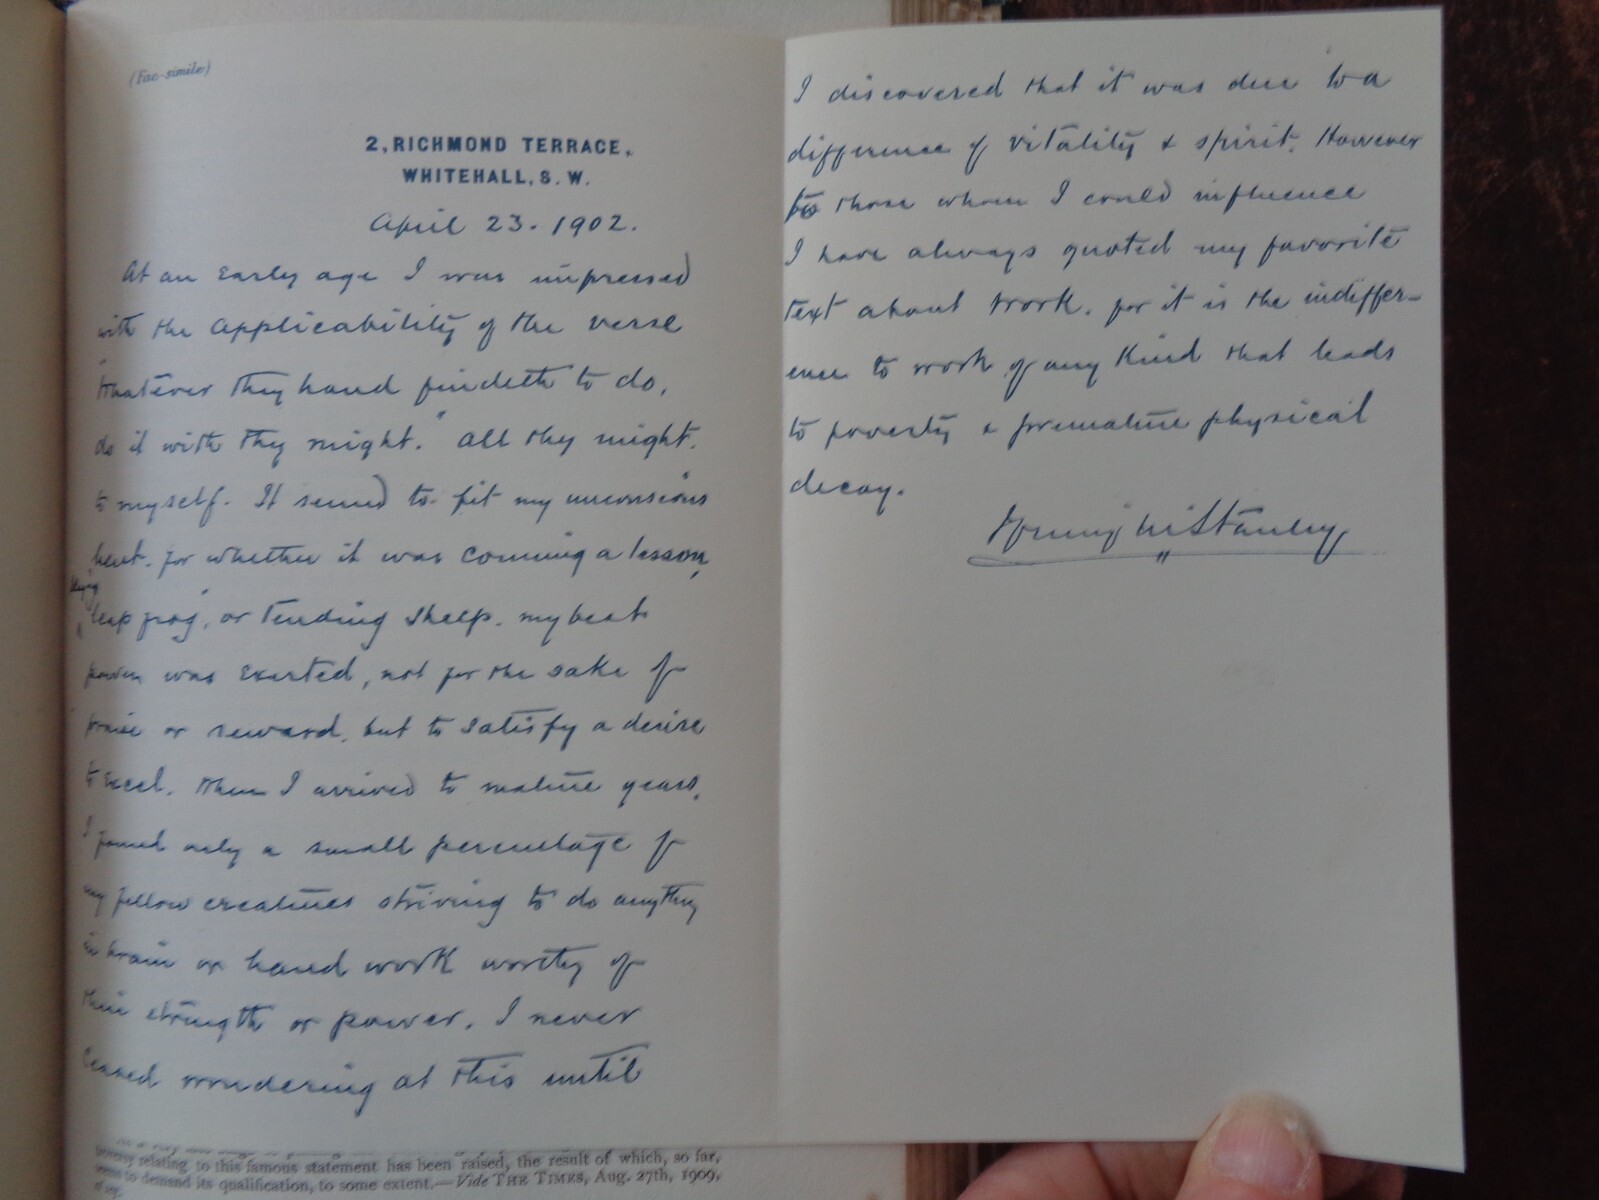 (Fac-simile)
2, RICHMOND TERRACE,
WHITEHALL, S. W.
April 23. 1902.
At an early age I was impressed
with the applicability of the verse
"Whatever thy hand findeth to do,
do it with thy might." All thy might.
to myself. It seemed to fit my unconscious
bent. for whether it was conning a lesson,
playing
"leap frog", or tending sheep. my best
power was exerted, not for the sake of
praise or reward, but to satisfy a desire
to excel. When I arrived to mature years,
I found only a small percentage of
my fellow creatures striving to do anything
in brain or hand work worthy of
their strength or power. I never
ceased wondering at this until
I discovered that it was due to a
difference of vitality & spirit. However
to those whom I could influence
I have always quoted my favorite
text about work. for it is the indiffer-
ence to work of any kind that leads
to poverty & premature physical
decay.
Henry M Stanley
relating to this famous statement has been raised, the result of which, so far,
to demand its qualification, to some extent.—Vide THE TIMES, Aug. 27th, 1909,